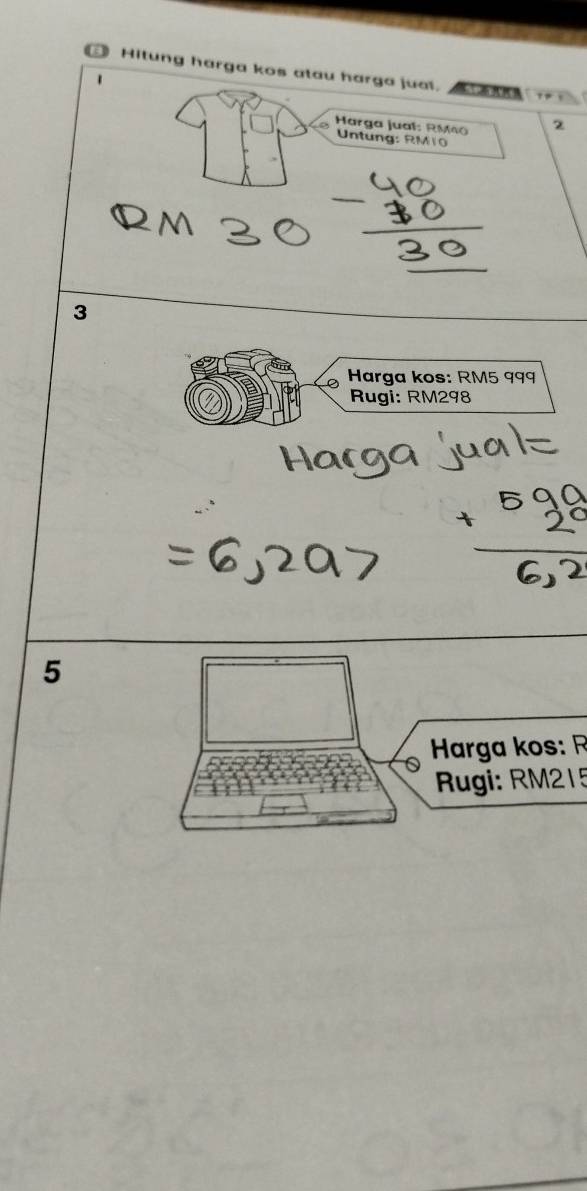 B Hitung harga kos atau harga jual. TP 3
1
Harga jual: RM40
Untung: RM10
2
40
- 10
30
RM 30
3
Harga kos: RM5 999
Rugi: RM298
Harga jual =
599
+ 29
6,2
= 6,297
5
Harga kos: R
Rugi: RM215